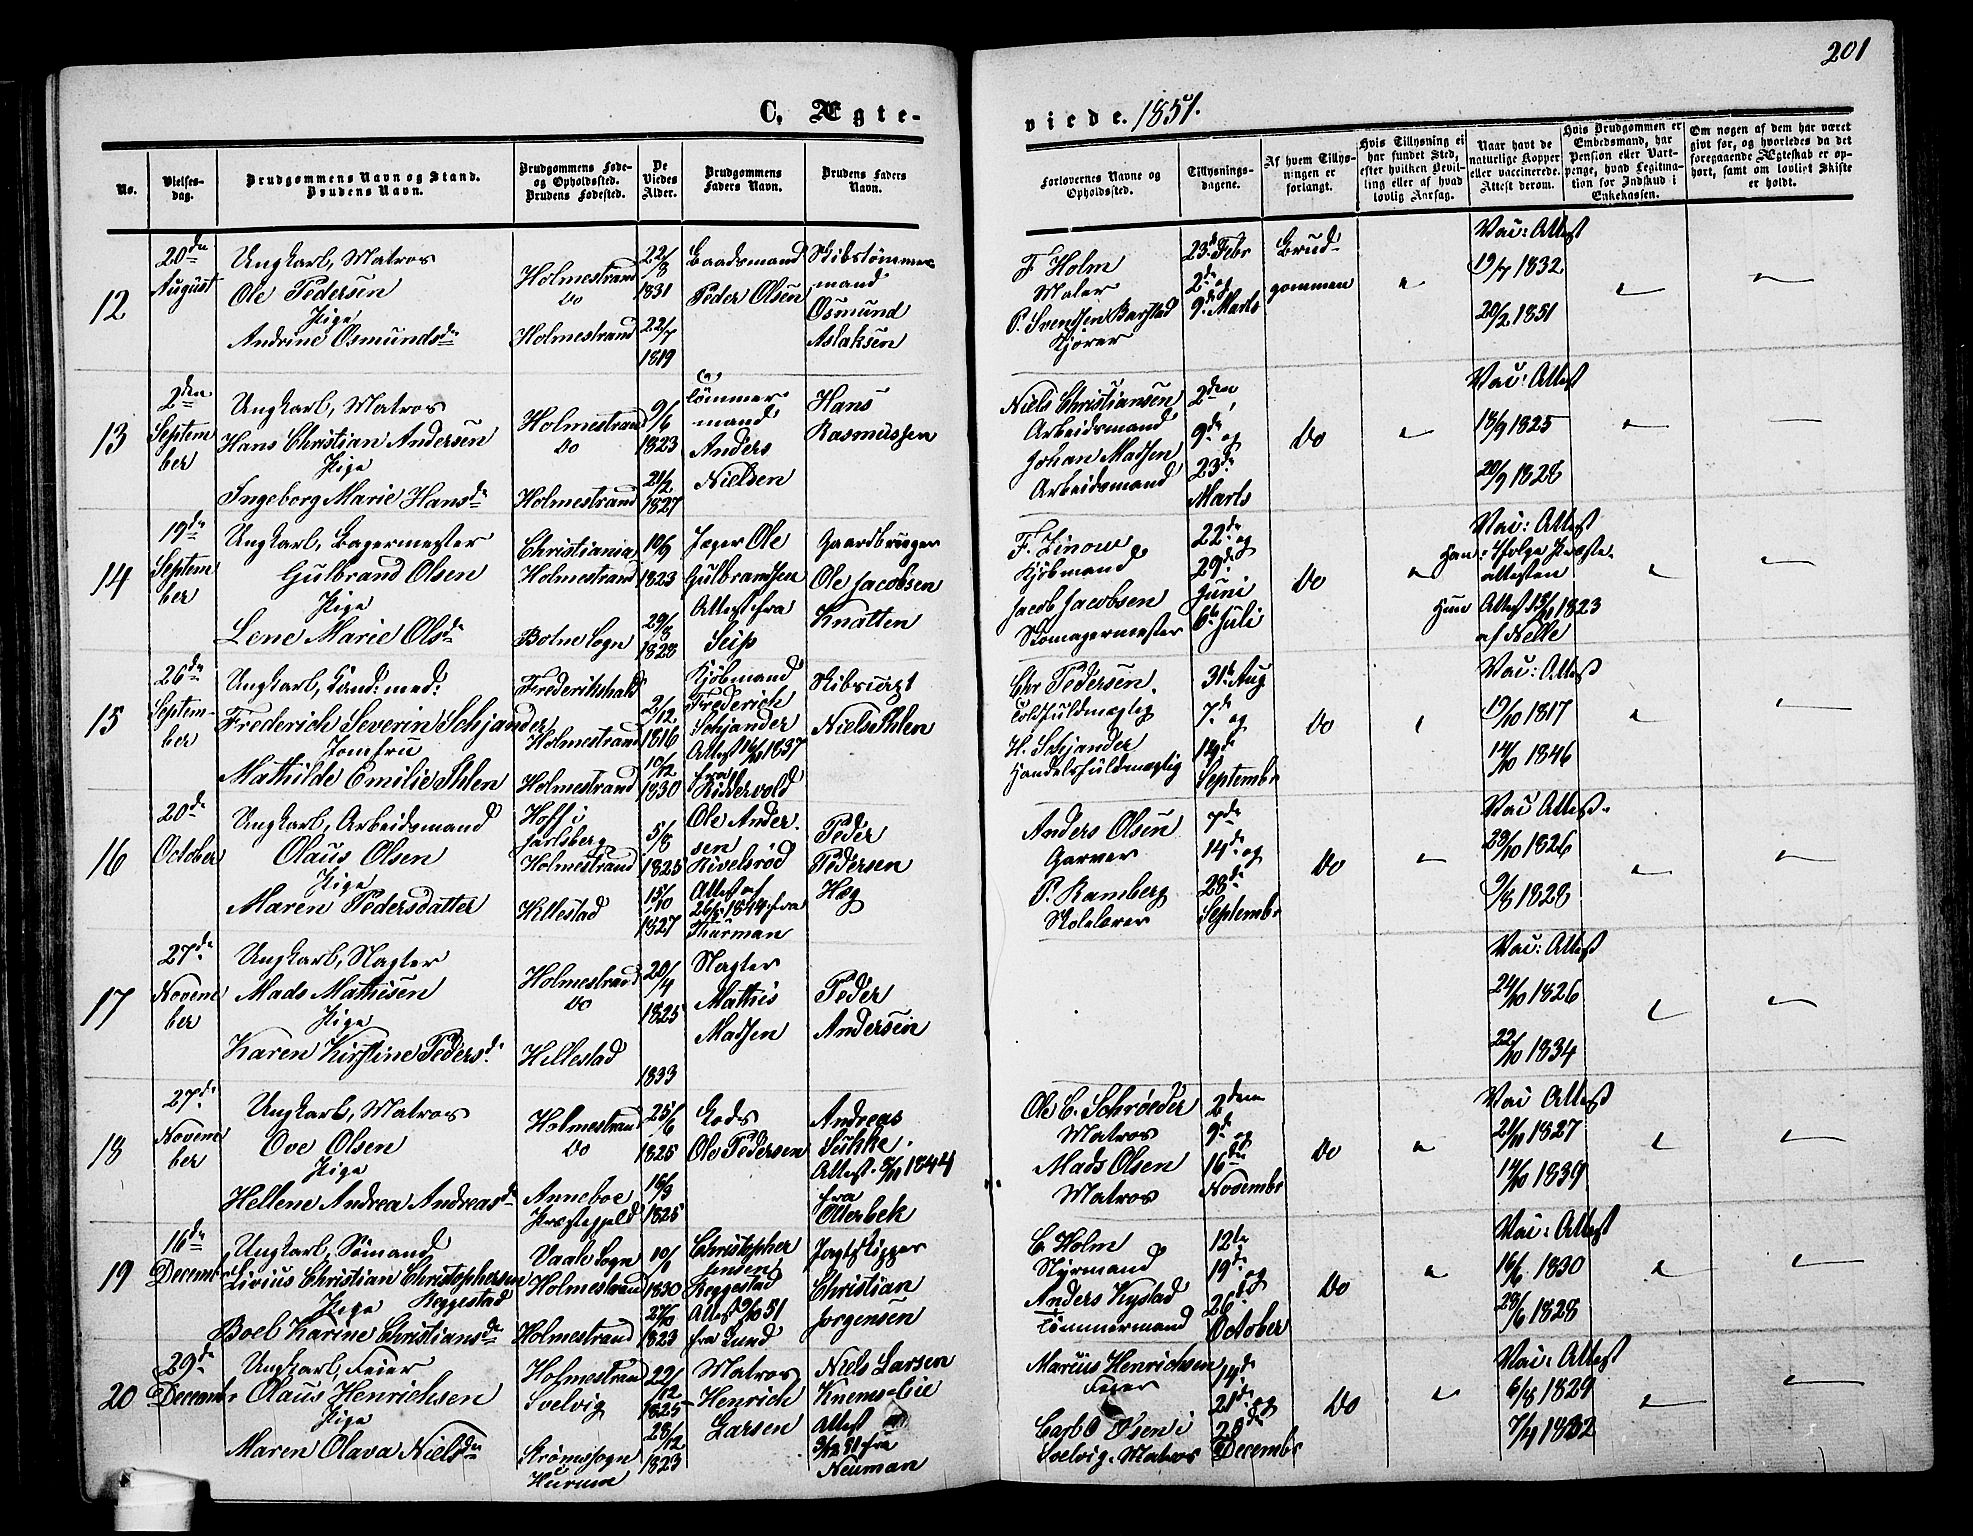 201
C. Ægte-
viede. 1851.
No.
Vielses-
dag.
Brudgommens Navn og Stand.
Brudens Navn.
Brudgommens Føde-
og Opholdssted.
Brudens Fødested.
De
Viedes
Alder.
Brudgommens
Faders Navn.
Brudens Faders
Navn.
Forlovernes Navne og
Opholdssted.
Tillysnings-
dagene.
Af hvem Tillys-
ningen er
forlangt.
Hvis Tillysning ei
har fundet Sted,
efter hvilken Bevil-
ling eller af hvad
lovlig Aarsag.
Naar havt de
naturlige Kopper
eller vaccinerede.
Attest derom.
Hvis Brudgommen er
Embedsmand, har
Pension eller Vart-
penge, hvad Legitima-
tion for Indskud i
Enkekassen.
Om nogen af dem har været
givt før, og hvorledes da det
foregaaende Ægteskab er op-
hørt, samt om lovligt Skifte
er holdt.
12
20de
August
Ungkarl, Matros
Ole Pedersen
Pige
Andrine Osmundsdr
Holmestrand
Do
Holmestrand
22/8
1831
22/7
1819
Baadsmand
Peder Olsen
Skibstømmer
mand
Osmund
Aslaksen
F. Holm
Maler
P. Svendsen Barstad
23d Febr
2de og
9de Marts
Brud-
gommen
Vac: Attest
19/7 1832
20/2 1851
13
2den
Septem
ber
Ungkarl, Matros
Hans Christian Andersen
Pige
Ingeborg Marie Hansdr
Holmestrand
Do
Holmestrand
9/6
1823
21/2
1827
Tømmer
mand
Anders
Nielsen
Hans
Rasmussen
Niels Christiansen
Arbeidsmand
Johan Madsen
Arbeidsmand
2den,
9de og
23de
Marts
Do
Vac: Attest
18/9 1825
20/9 1828
14
19de
Septem
ber
Ungkarl, Bagermester
Gulbrand Olsen
Pige
Lene Marie Olsdr
Christiania
Holmestrand
Botne Sogn
10/9
1823
29/8
1828
Jæger Ole
Gulbrandsen
Attest fra
Seip
Gaardbruger
Ole Jacobsen
Knatten
F. Linow
Kjøbmand
Jacob Jacobsen
Skomagermester
22de og
29de
Juni
6te Juli
Do
Vac: Attest
Han: ifølge Præste-
attesten
Hun Attest 1823
af Kelle
15
26de
Septem-
ber
Ungkarl, Cand: med:
Frederich Severin Schjander
Jomfru
Mathilde Emilie Ihlen
Frederikshald
Holmestrand
Holmestrand
2/12
1816
10/12
1830
Kjøbmand
Frederich
Schjander
Attest 1837
fra
Riddervold
Skibsrigt
Niels Ihlen
Chr Pedersen.
Toldfuldmægtig
H. Schjander
Handelsfuldmægtig
31te Aug
7de og
14de
Septembr
Do
Vac: Attest
19/10 1817
14/10 1846
16
20de
October
Ungkarl, Arbeidsmand
Olaus Olsen
Pige
Maren Pedersdatter
Hoff i
Jarlsberg
Holmestrand
Hillestad
5/8
1825
15/10
1827
Ole Ander-
sen
Kivelsrød
Attest af
1844 fra
Thurman
Peder
Pedersen
Hæg
Anders Olsen
Garver
P. Ramberg
Skolelærer
7de
14de og
28de
Septembr
Do
Vac Attest.
29/10 1826
9/8 1828
17
27de
Novem
ber
Ungkarl, Slagter
Mads Mathisen
Pige
Karen Kirstine Pedersd.
Holmestrand
Do
Hillestad
20/4
1825
1833
Slagter
Mathis
Madsen
Peder
Andersen
Vac: Attest
24/10 1826
22/10 1834
18
27de
Novem
ber
Ungkarl, Matros
Ove Olsen
Pige
Hellene Andrea Andreasdr
Holmestrand
Do
Anneboe
Præstegjeld
25/6
1825
15/3
1825
Lods
Ole Pedersen
Andreas
Attest 1844
fra
Otterbek
Ole C. Schrøeder
Matros
Mads Olsen
Matros
2den
9de og
16de
Novembr
Do
Vac Attest
21/11 1827
14/10 1839
19
16de
Decembr
Ungkarl, Sømand
Livius Christian Christophersen
Pige Reggestad
Boel Karine Christiansdr
Vaale Sogn
Holmestrand
Holmestrand
10/1
1830
27/10
1823
Christopher
Jensen
Reggestad
Attest 9/10 51
fra Lund
Jagtskipper
Christian
Jørgensen
C. Holm
Styrmand
Anders Kystad
Tømmermand
12te
19de og
26de
October
Do
Vac: Attest
16/6 1830
28/6 1828
20
29de
Decembr
Ungkarl, Feier
Olaus Henrichsen
Pige
Maren Olava Nielsdr
Holmestrand
Svelvig
Strømssogn
Hurum
22/12
1825
28/12
1823
Matros
Henrich
Larsen
Niels Larsen
Attest
fra
Neuman
Marcus Henrichsen
Feier
Carl O Olsen i
Svelvig. Matros
14de
21de og
28de
Decembr
Do
Vac: Attest
6/8 1829
7/11 1832